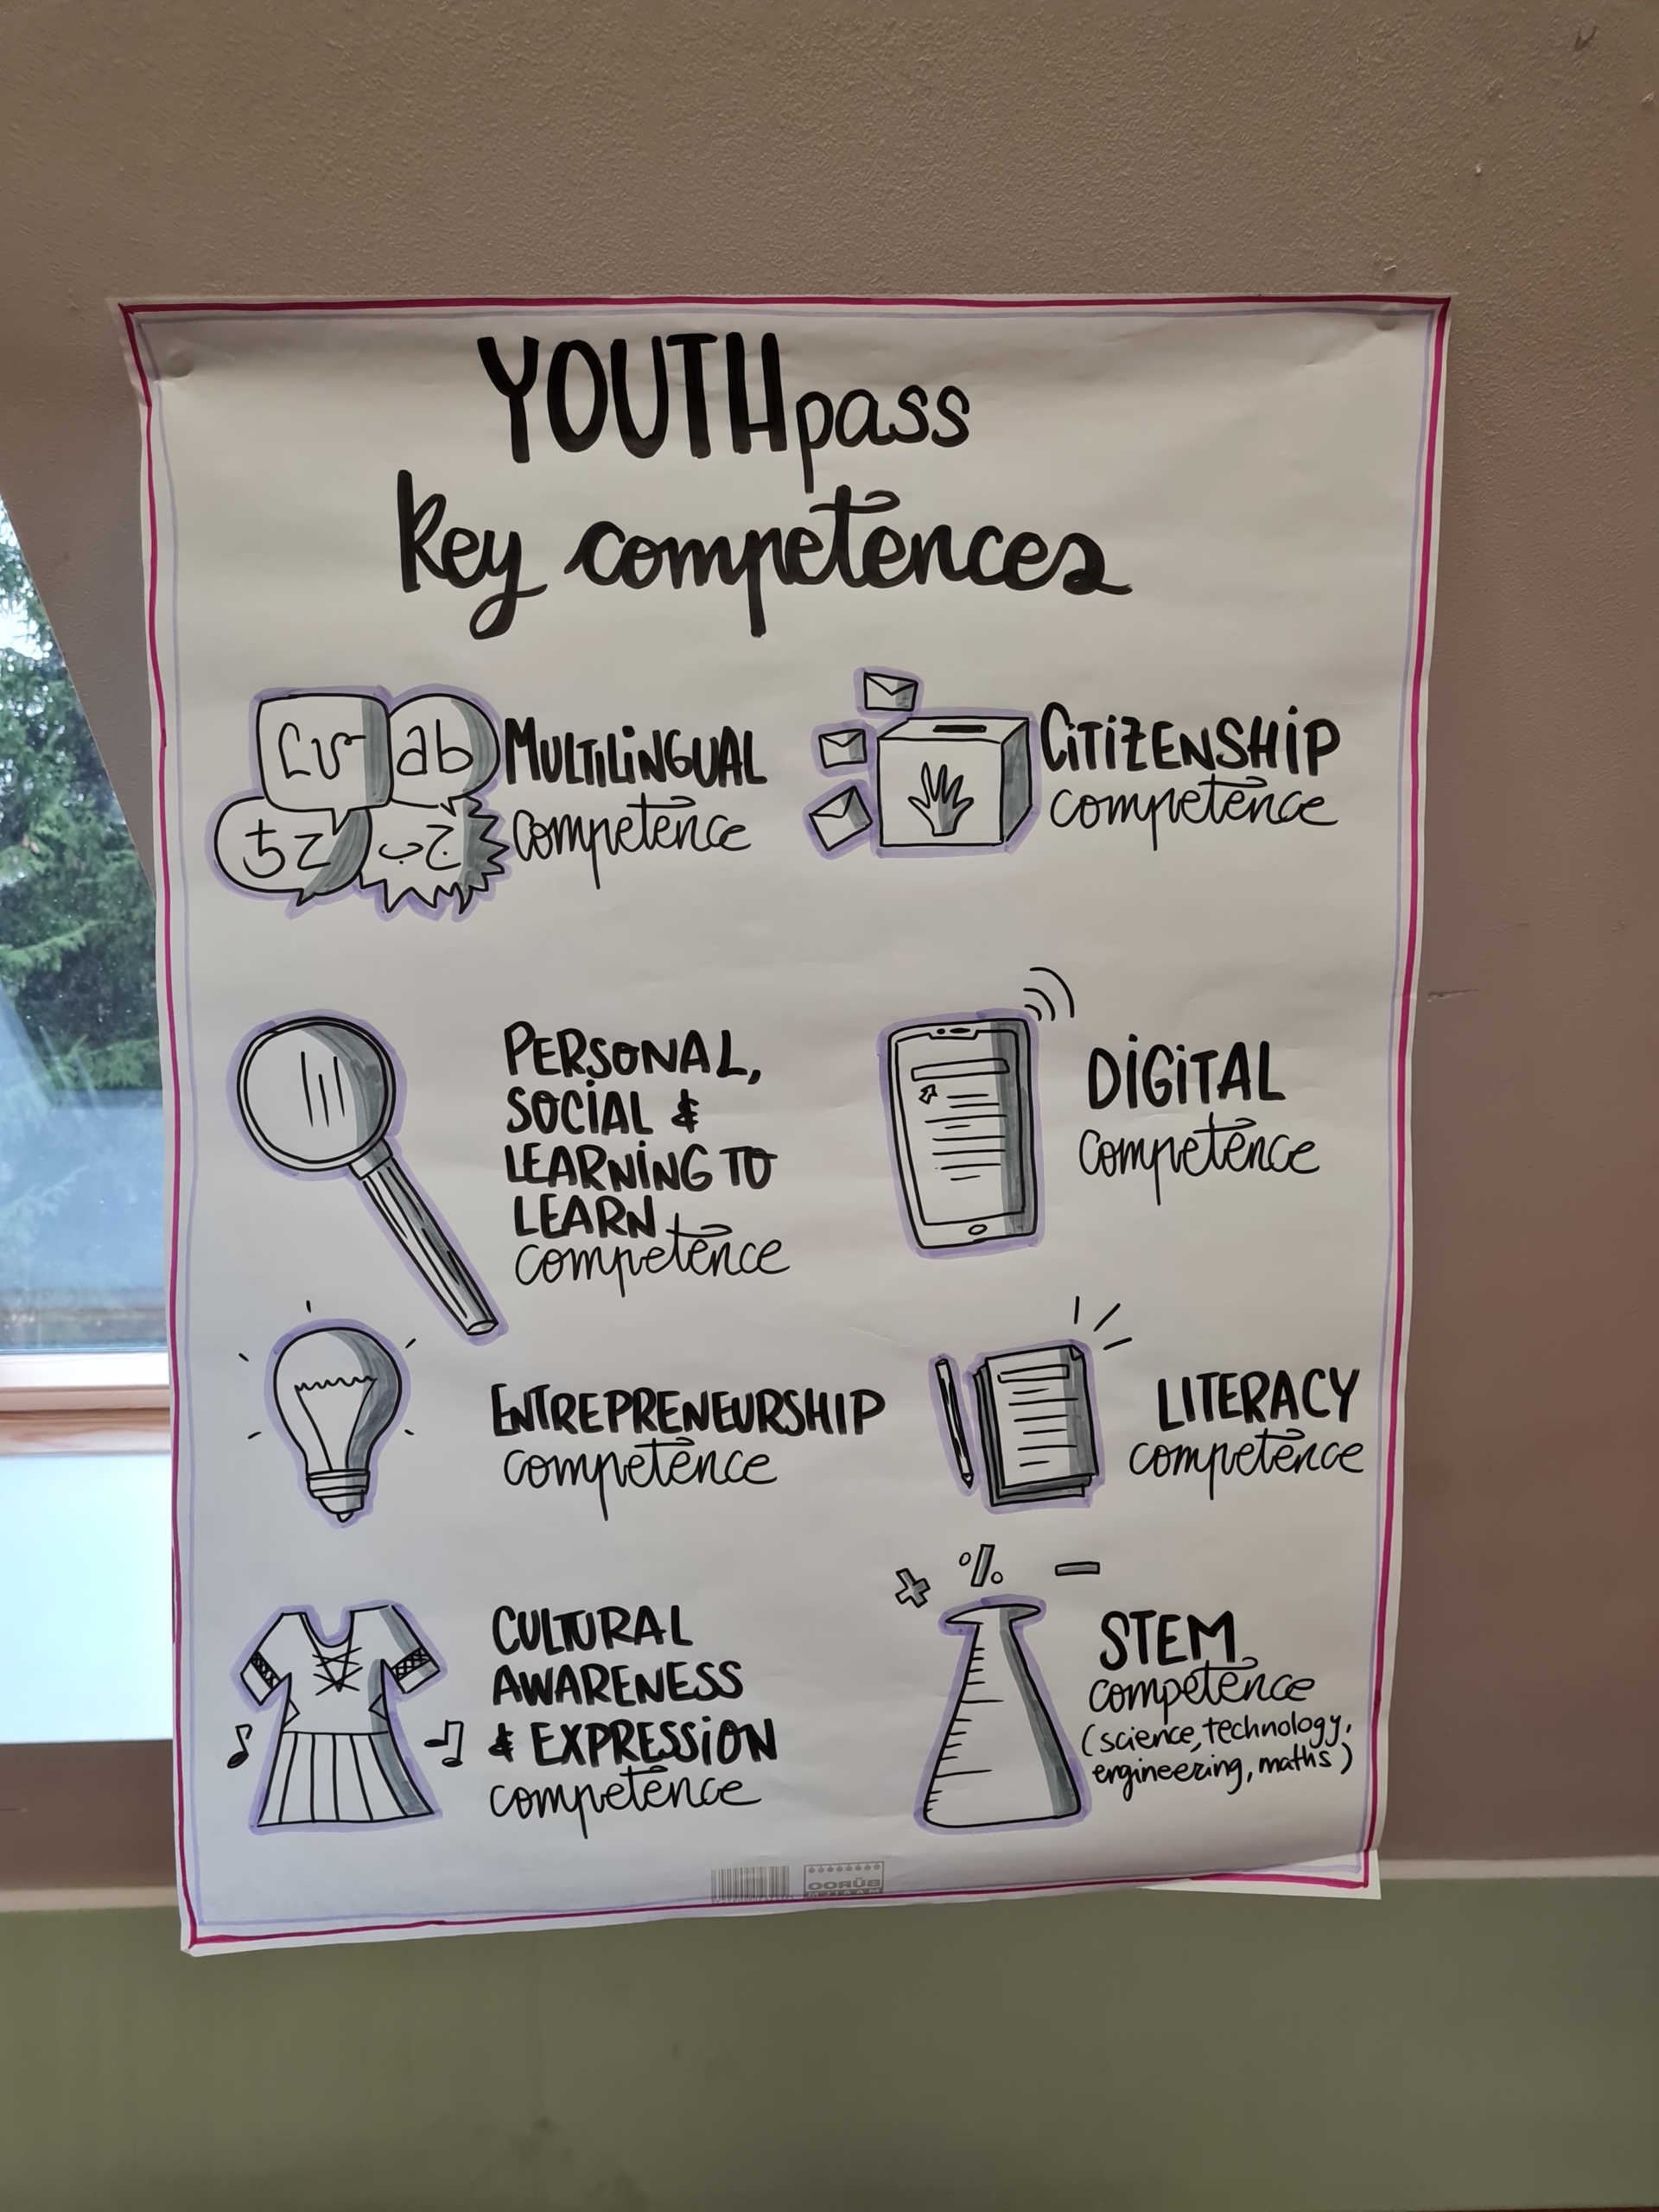 YOUTHpass
key competences
ab
MULTILINGUAL
competence
CITIZENSHIP
competence
PERSONAL,
SOCIAL &
LEARNING TO
LEARN
competence
DIGITAL
competence
ENTREPRENEURSHIP
competence
LITERACY
competence
CULTURAL
AWARENESS
& EXPRESSION
competence
+ % −
STEM
competence
(science, technology,
engineering, maths)